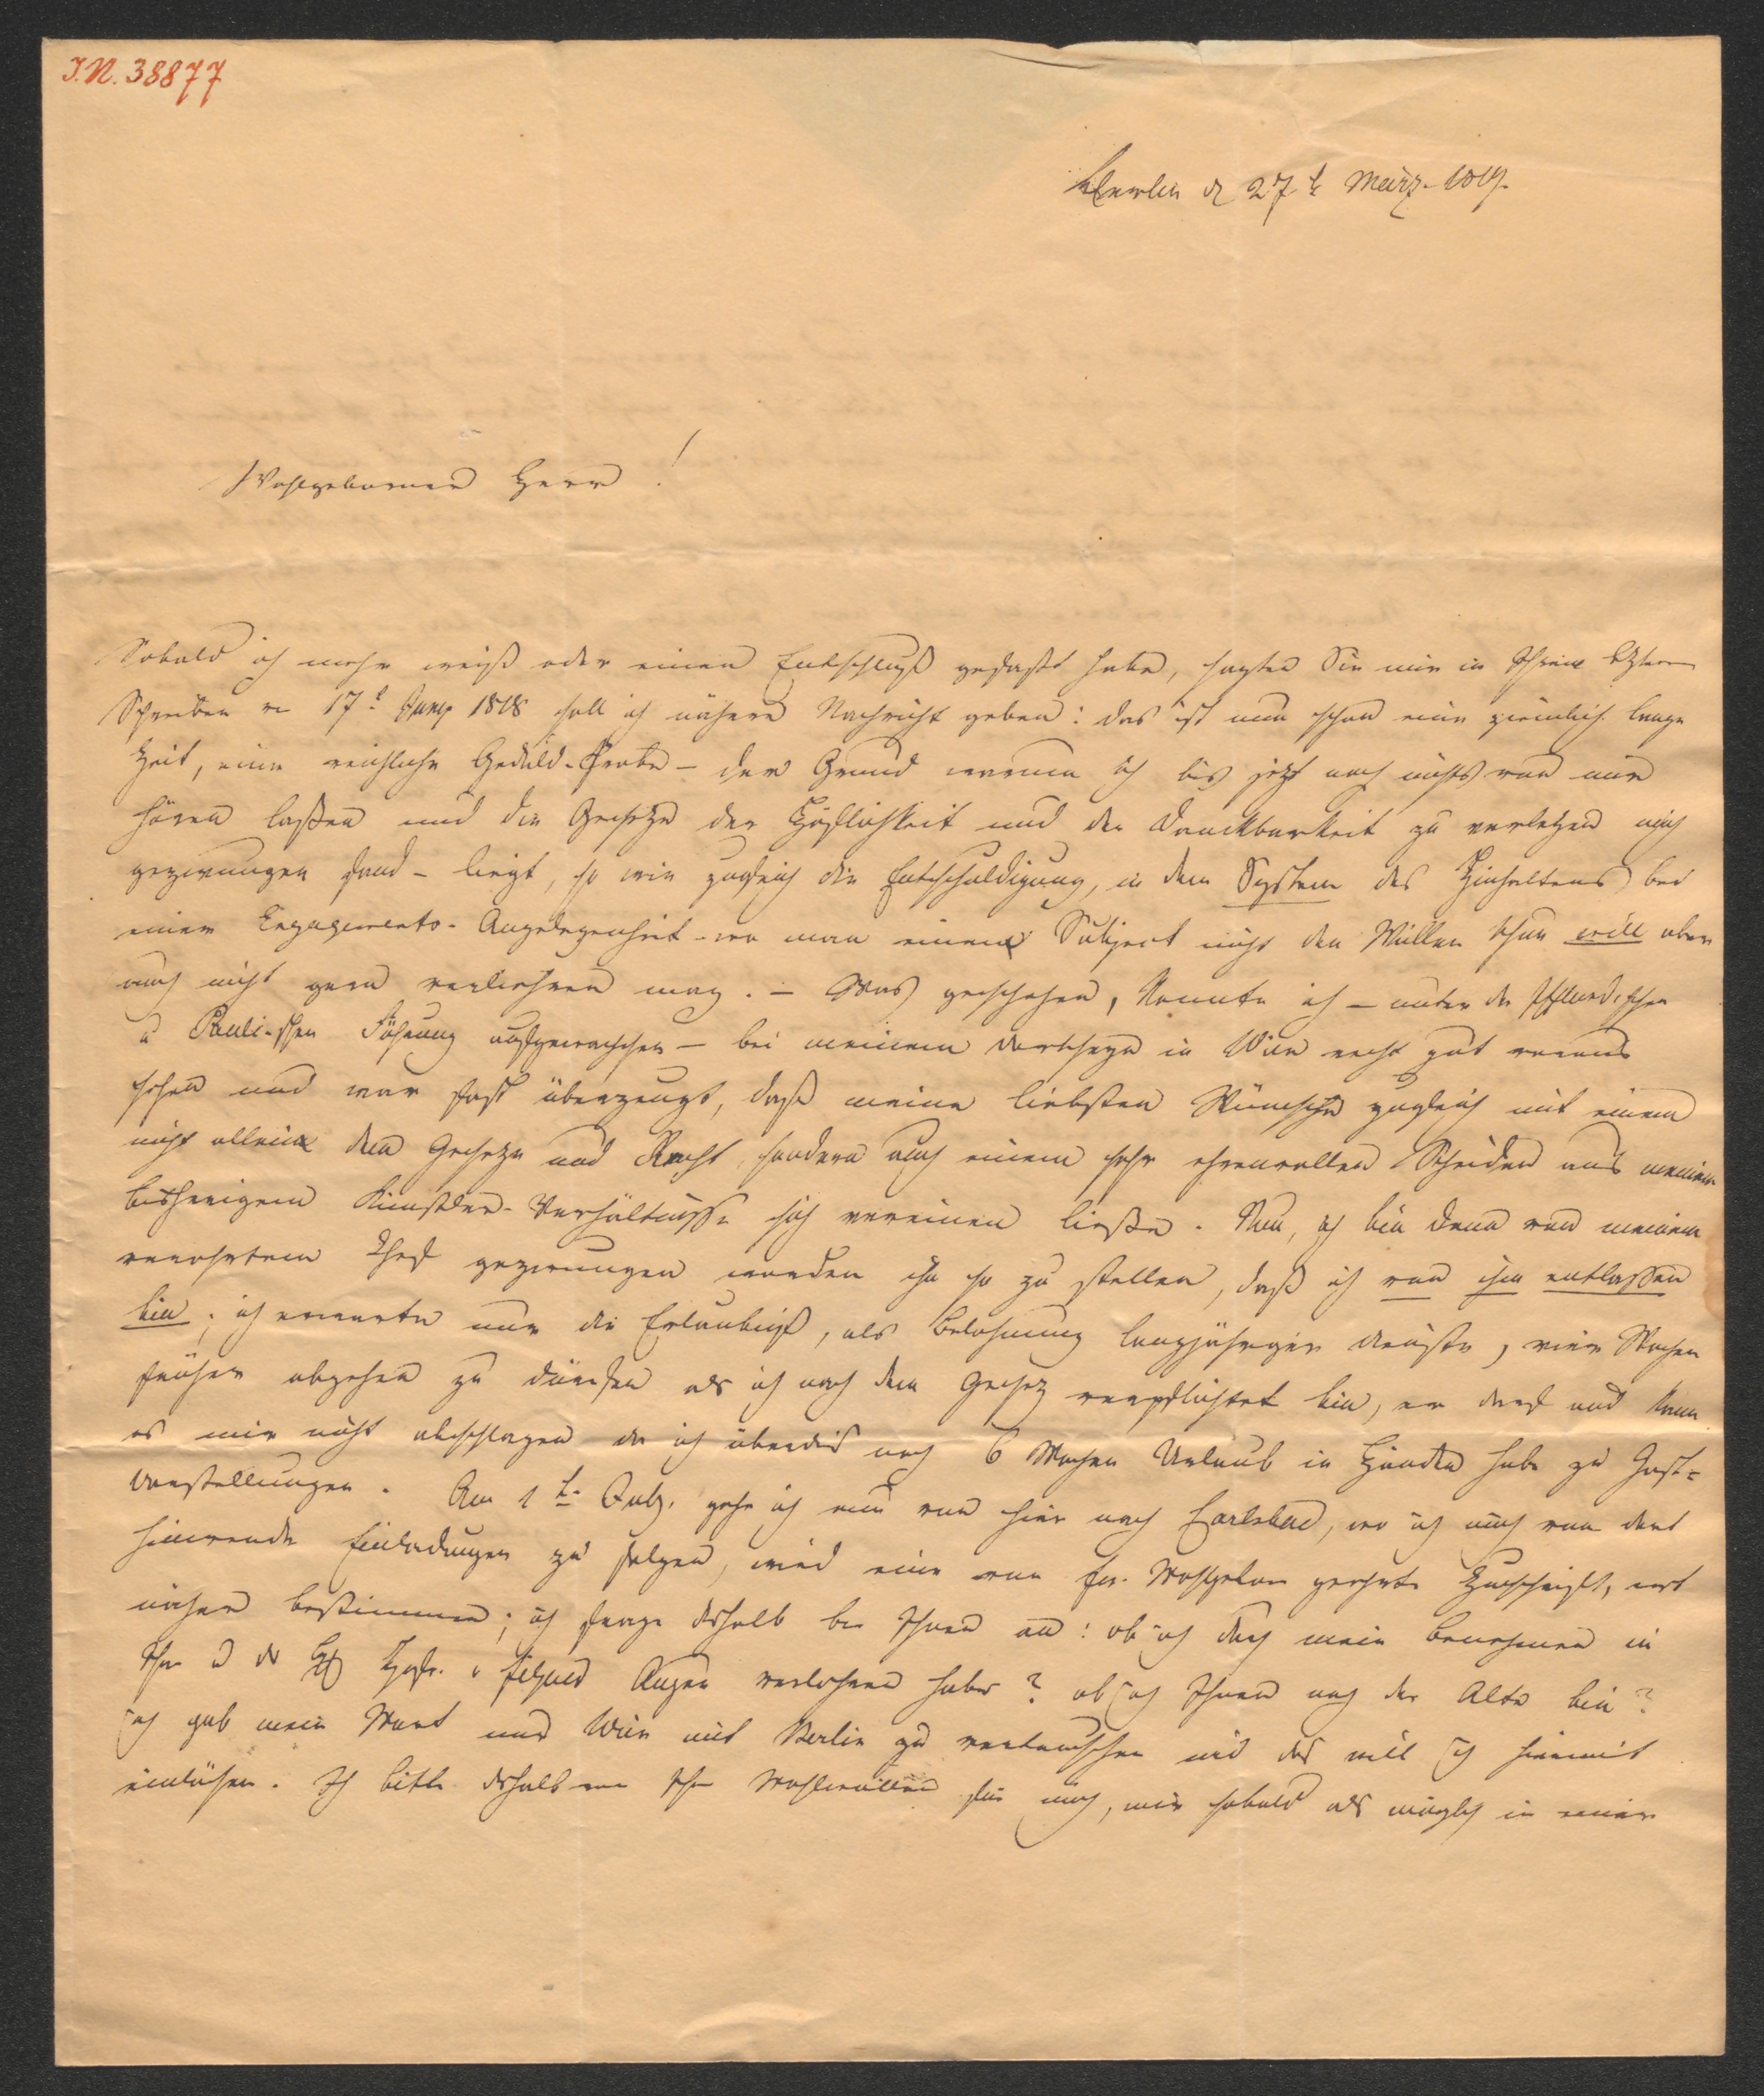 I.N. 38877
Berlin d 27t März 1819.
Wohlgeborner Herr!
Sobald ich mehr weiß oder einen Entschluß gefaßt habe, sagten Sie mir in Ihrem letztern
Schreiben v 17t Juny 1818 soll ich nähere Nachricht geben: das ist nun schon eine ziemlich lange
Zeit, eine reichliche Geduld-Probe – der Grund warum ich bis jetzt noch nichts von mir
hören laßen und die Gesetze der Höflichkeit und der Dankbarkeit zu verletzen mich
gezwungen fand – liegt, so wie zugleich die Entschuldigung, in dem System des Hinhaltens bei
einer Engagements-Angelegenheit wo man einem Subject nicht den Willen thun will aber
auch nicht gern verliehren mag. – Was geschehen, konnte ich – unter der Ifflandischen
u Pauli-schen Führung aufgewachsen – bei meinem Dortseyn in Wien recht gut voraus
sehen und war fast überzeugt, daß meine liebsten Wünsche zugleich mit einem
nicht allein dem Gesetze und Recht, sondern auch einem sehr ehrenvollen Scheiden aus meinem
bisherigem Künstler-Verhältnisse sich vereinen ließe. Nun, ich bin denn von meinem
verehrtem Chef gezwungen worden ihn so zu stellen, daß ich von ihm entlaßen
bin; ich erwarte nur die Erlaubniß, als Belohnung langjähriger Dienste, vier Wochen
früher abgehen zu dürfen als ich nach dem Gesetz verpflichtet bin, er darf und kann
es mir nicht abschlagen da ich überdieß noch 6 Wochen Urlaub in Händen habe zu Gast-
vorstellungen. Am 1t July. gehe ich nun von hier nach Carlsbad, wo ich mich von dort
hinwende Einladungen zu folgen, wird eine von Ew. Wohlgeborn geehrte Zuschrift, erst
näher bestimmen; ich frage deshalb bei Ihnen an: ob ich durch mein Benehmen in
Ihren u der Augen verlohren habe? ob ich Ihnen noch der Alte bin?
ich gab mein Wort nur Wien mit Berlin zu vertauschen und das will ich hiermit
einlösen. Ich bitte deshalb von Ihrem Wohlwollen für mich, mir sobald als möglich in einer